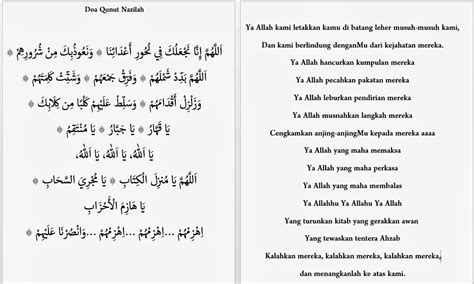 Doa Qunut Nazilah
اَللَّهُمَّ إِنَّا نَجْعَلُكَ فِي نُحُورِ أَعْدَائِنَا ۞ وَنَعُوذُبِكَ مِنْ شُرُورِهِمْ ۞
اَللَّهُمَّ بَدِّدْ شَمْلَهُمْ ۞ وَفَرِّقْ جَمْعَهُمْ ۞ وَشَتِّتْ كَلِمَتَهُمْ ۞
وَزَلْزِلْ أَقْدَامَهُمْ ۞ وَسَلِّطْ عَلَيْهِمْ كَلْبًا مِنْ كِلَابِكَ ۞
يَا قَهَّارُ ۞ يَا جَبَّارُ ۞ يَا مُنْتَقِمُ ۞
يَا اَللهُ، يَا اَللهُ، يَا اَللهُ
اَللَّهُمَّ يَا مُنْزِلَ الْكِتَابِ ۞ يَا مُجْرِيَ السَّحَابِ ۞
يَا هَازِمَ الْأَحْزَابِ
اِهْزِمْهُمْ ... اِهْزِمْهُمْ ... اِهْزِمْهُمْ ... وَانْصُرْنَا عَلَيْهِمْ ۞
Ya Allah kami letakkan kamu di batang leher musuh-musuh kami,
Dan kami berlindung denganMu dari kejahatan mereka.
Ya Allah hancurkan kumpulan mereka
Ya Allah pecahkan pakatan mereka
Ya Allah leburkan pendirian mereka
Ya Allah musnahkan langkah mereka
Cengkamkan anjing-anjingMu kepada mereka aaaa
Ya Allah yang maha memaksa
Ya Allah yang maha perkasa
Ya Allah yang maha membalas
Ya Allahhu Ya Allahu Ya Allah
Yang turunkan kitab yang gerakkan awan
Yang tewaskan tentera Ahzab
Kalahkan mereka, kalahkan mereka, kalahkan mereka,
dan menangkanlah ke atas kami.